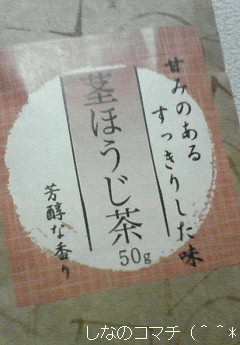 甘みのある
すっきりした味
茎ほうじ茶
50g
芳醇な香り
しなのコマチ(^^*